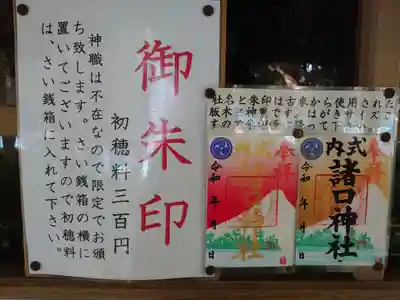 御朱印
初穂料三百円
神職は不在なので限定でお頒
ち致します。さい銭箱の横に
置いてございますので初穂料
は、さい銭箱に入れて下さい。
社名と朱印は古来から使用された
版木と神璽です。はがきサイズで
奉拝
式内
諸口神社
令和 年 月 日
奉拝
式内
諸口神社
令和 年 月 日